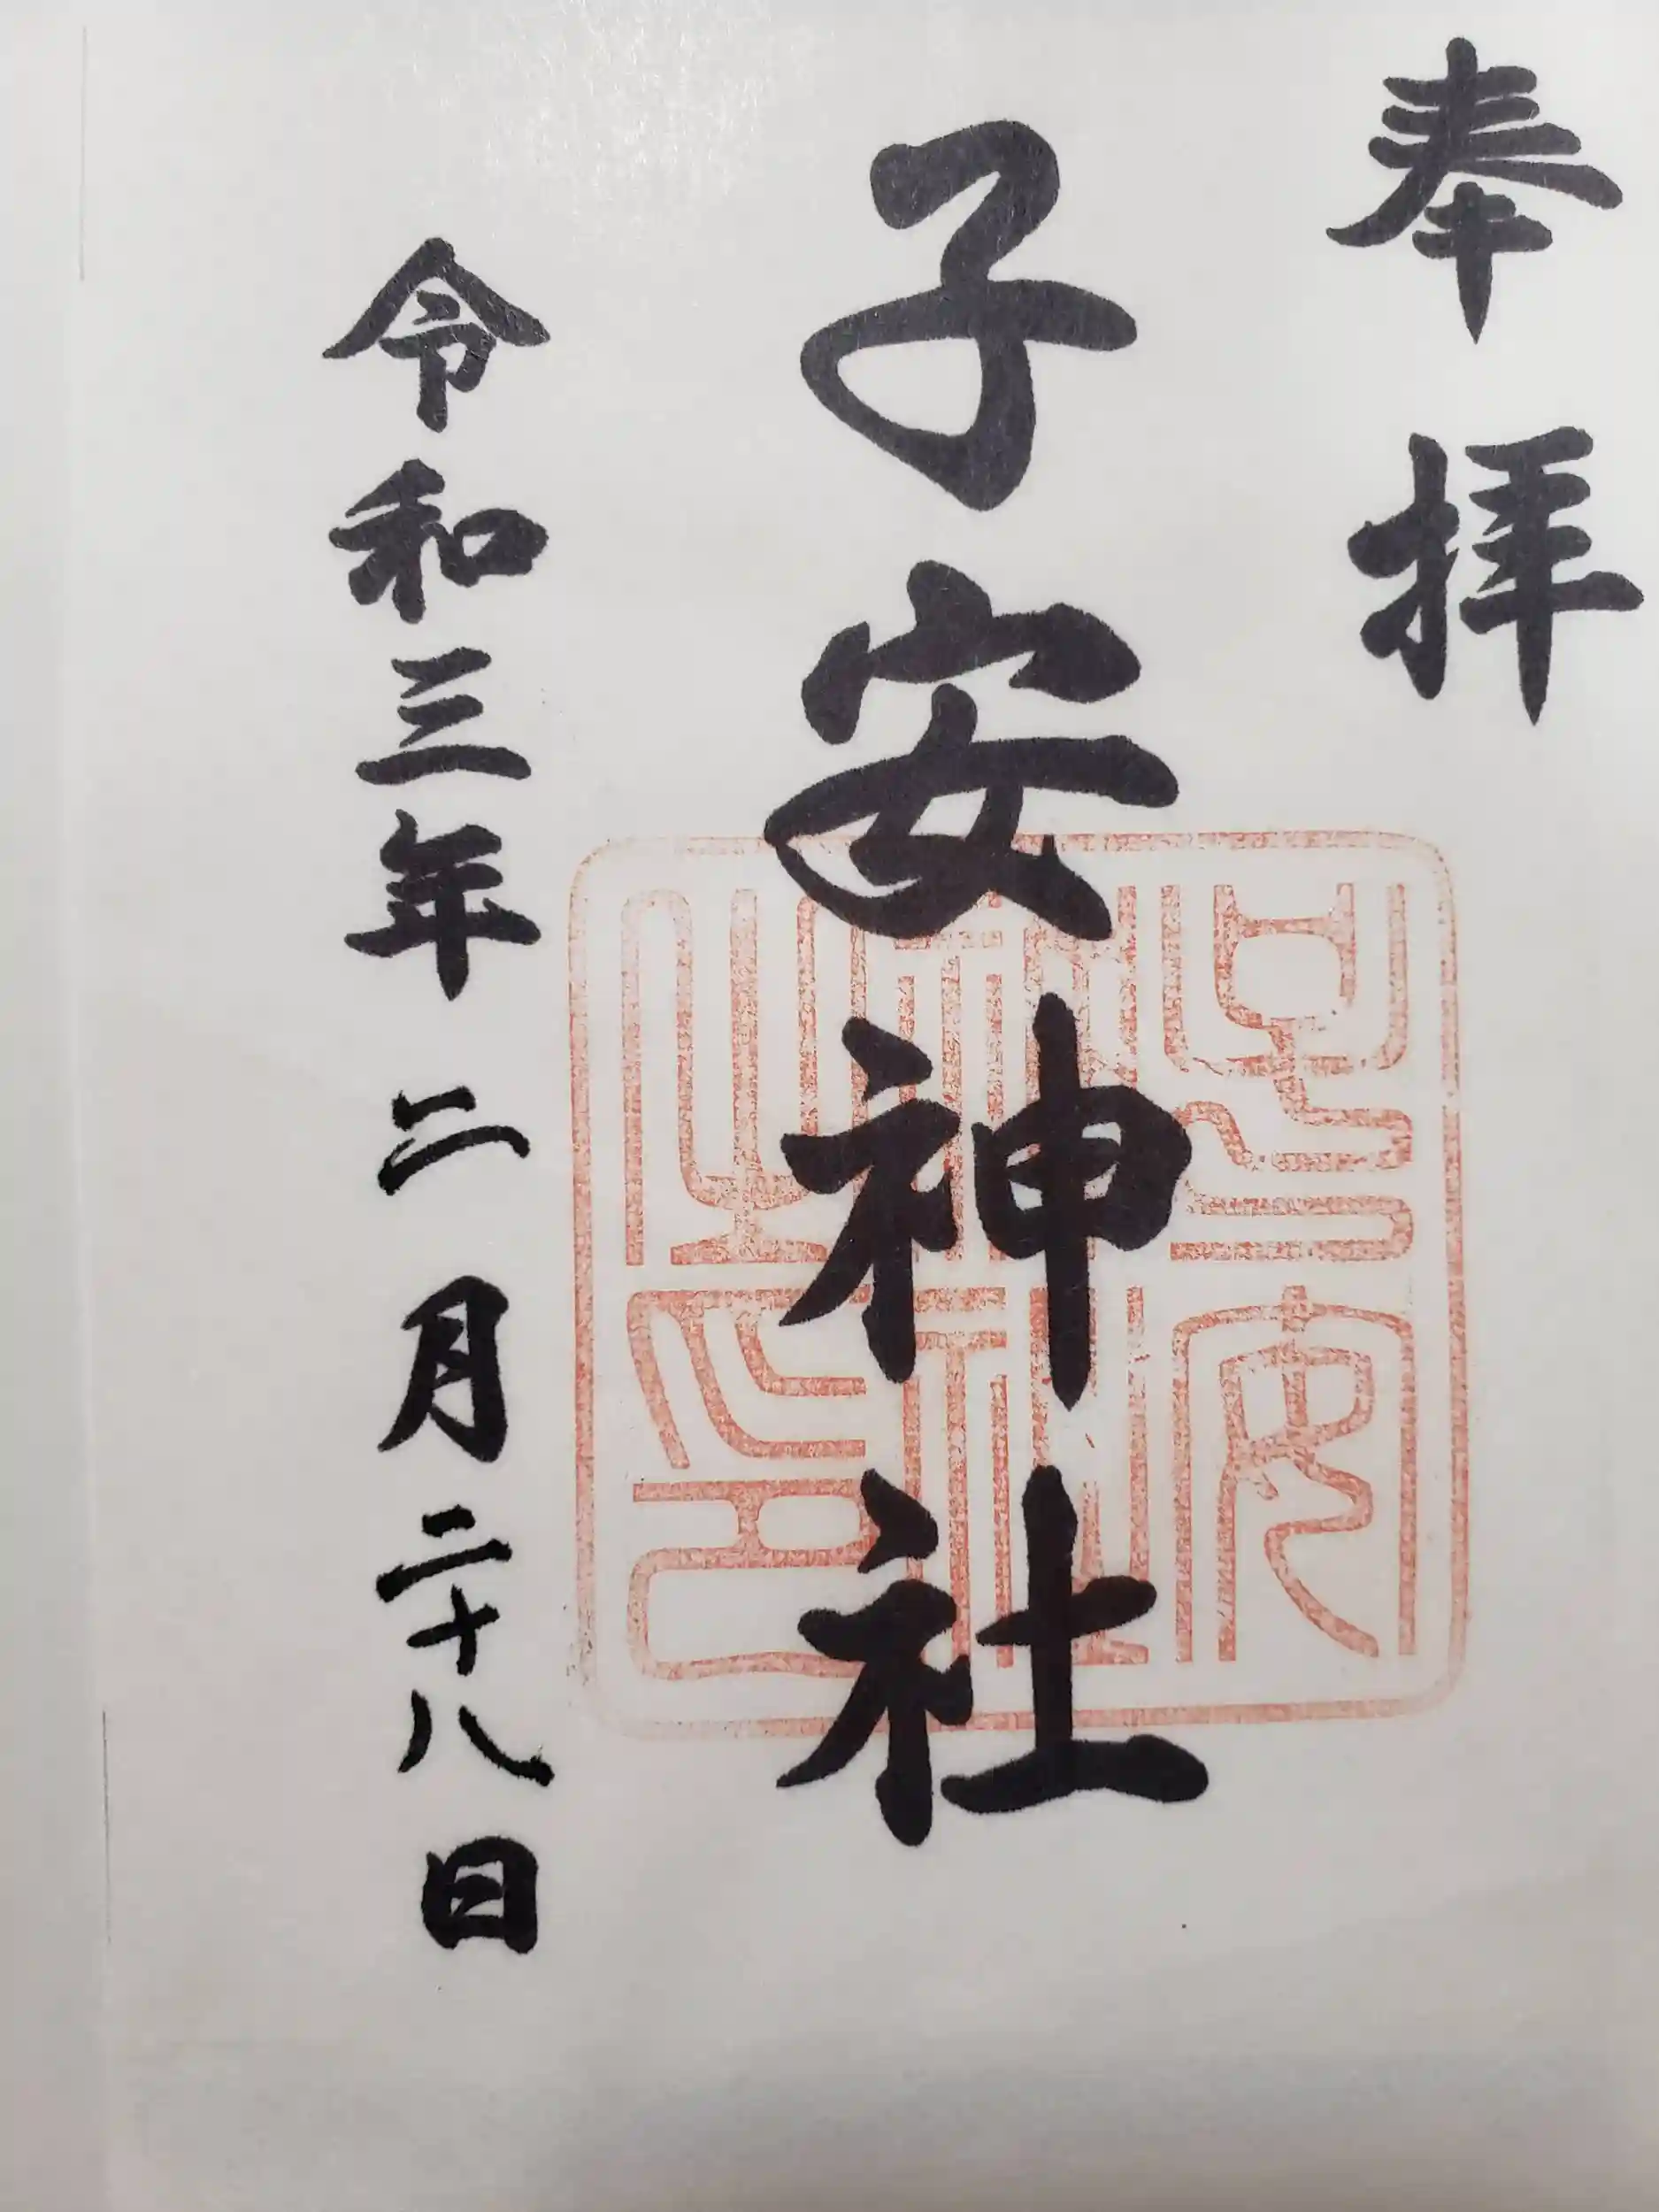 奉拝
子安神社
令和三年二月二十八日